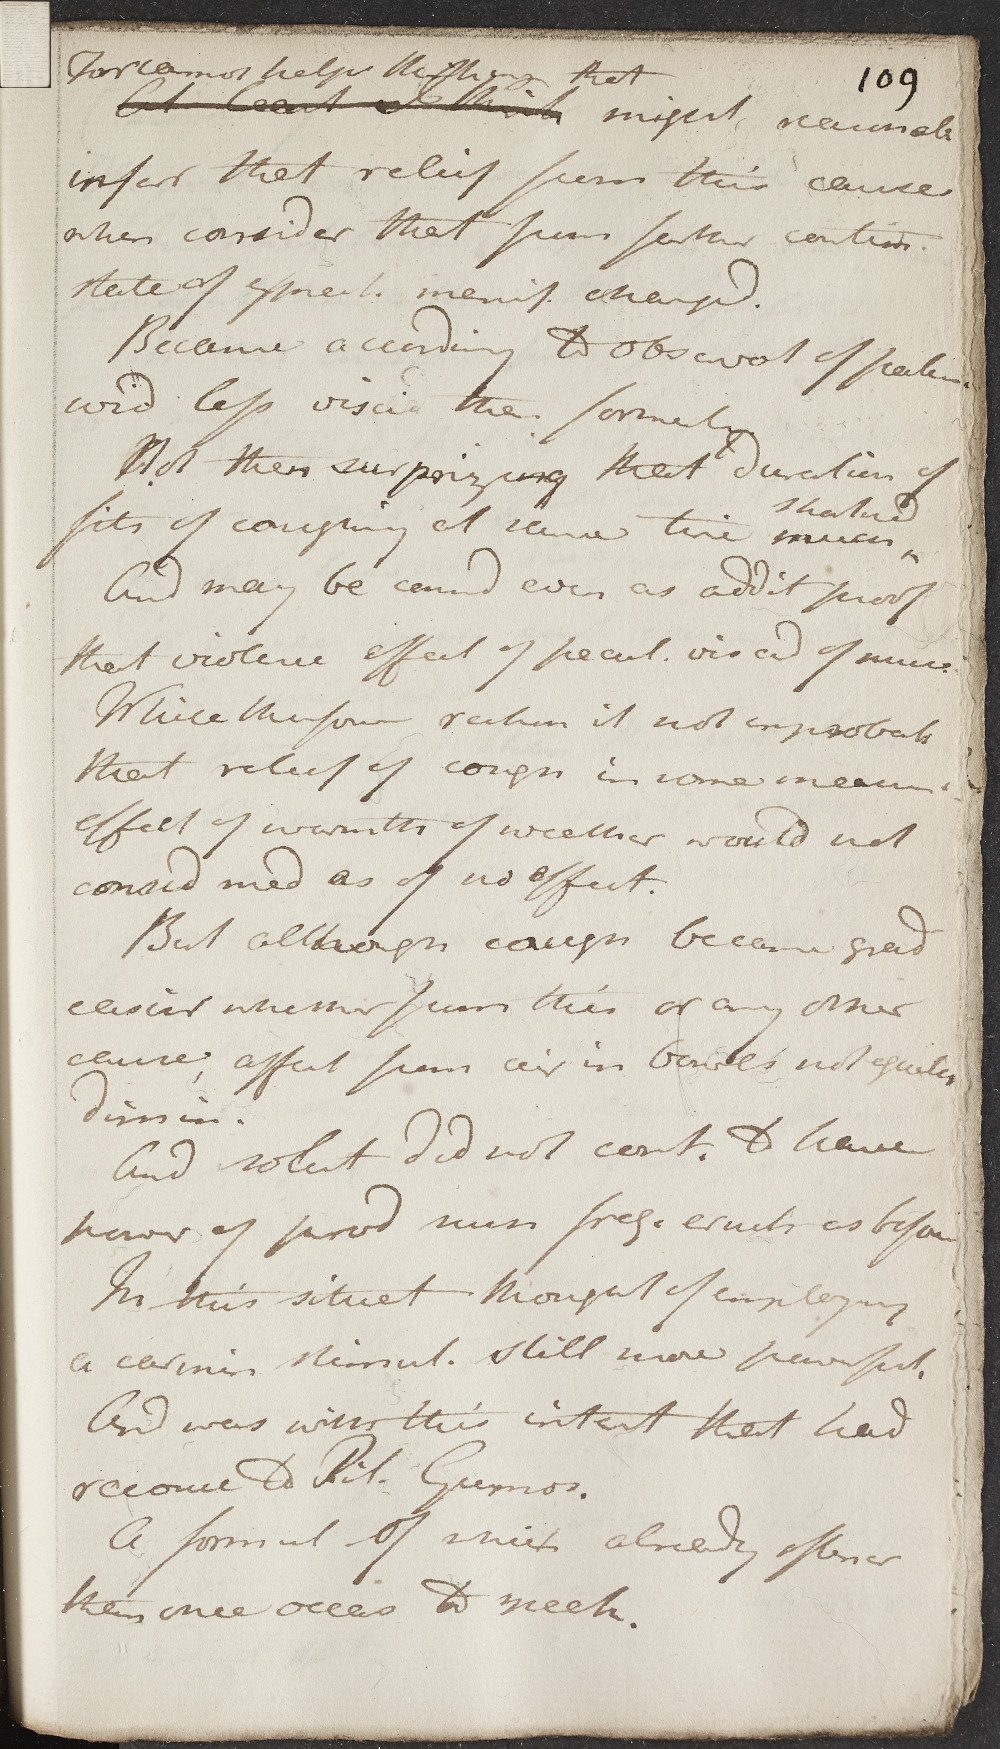 109
For cannot help thinking that
at least I think might reasonab
infer that relief from this cause
when consider that from farther contin.
state of expect. manif. changed.
Became according to observat of patien
word less viscid than formerly
Not then surprizing that duration of
fits of coughing at same time shortned
And may be consd even as addit proof
that violence effect of pecul. viscid of mucus
While therefore reckon it not improbab
that relief of cough in some measure
effect of warmth of weather would not
consid med as of no effect.
But although cough became grad
easier whether from this or any other
cause, affect from air in bowels not equally
dimin.
And solut did not cont. to have
power of prod such freq. eruct as before
In this situat thought of employing
a carmin stimul. still more powerful.
And was with this intent that had
recourse to Pil. Gummos.
A formul of which already oftener
than once occas to speak.